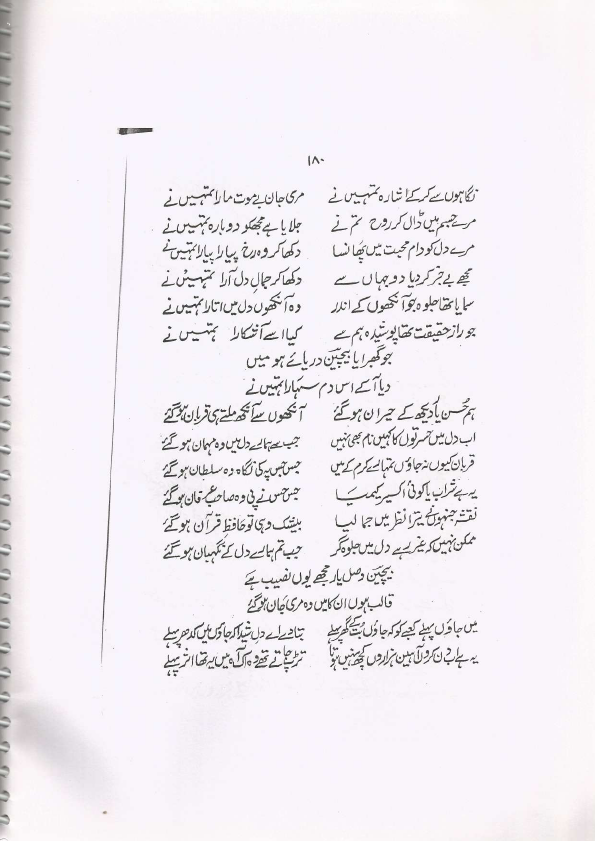 ۱۸۰
نگاہوں سے کر کے اشارہ تمہیں نے مری جان بے موت مارا تمہیں نے
مرے جسم میں ڈال کر روح تم نے جلایا ہے مجھکو دوبارہ تمہیں نے
مرے دل کو دام محبت میں پھانسا دکھا کر وہ رخ پیارا پیارا تمہیں نے
مجھے بے خبر کر دیا دو جہاں سے دکھا کر جمالِ دل آرا تمہیں نے
سمایا تھا جلوہ جو آنکھوں کے اندر وہ آنکھوں دل میں اتارا تمہیں نے
جو رازِ حقیقت تھا پوشیدہ ہم سے کیا اسے آشکارا تمہیں نے
جو گھبرایا بیچین دریائے ہو میں
دیا آ کے اس دم سہارا تمہیں نے
ہم حُسن یار دیکھ کے حیران ہو گئے آنکھوں سے آنکھ ملتے ہی قربان ہو گئے
اب دل میں حسرتوں کا کہیں نام بھی نہیں جب سے ہمارے دل میں وہ مہمان ہو گئے
قربان کیوں نہ جاؤں تمہارے کرم کے میں جس جس پہ کی نگاہ وہ سلطان ہو گئے
یہ ہے شراب یا کوئی اکسیر کیمیا جس جس نے پی وہ صاحبِ عرفان ہو گئے
نقشہ جنہوں نے تیرا نظر میں جما لیا بیشک وہی تو حافظِ قرآن ہو گئے
ممکن نہیں کہ غیر رہے دل میں جلوہ گر جب تم ہمارے دل کے نگہبان ہو گئے
بیچین وصل یار مجھے یوں نصیب ہے
قالب ہوں ان کا میں وہ مری جان ہو گئے
میں جاؤں پہلے کعبے کو کہ جاؤں بت کے گھر پہلے بتا دے اے دلِ شیدا کہ جاؤں میں کدھر پہلے
یہ ہے اب دن کروں آہیں ہزاروں کچھ نہیں ہوتا تڑپ جاتے تھے وہ اک آہ میں یہ تھا اثر پہلے